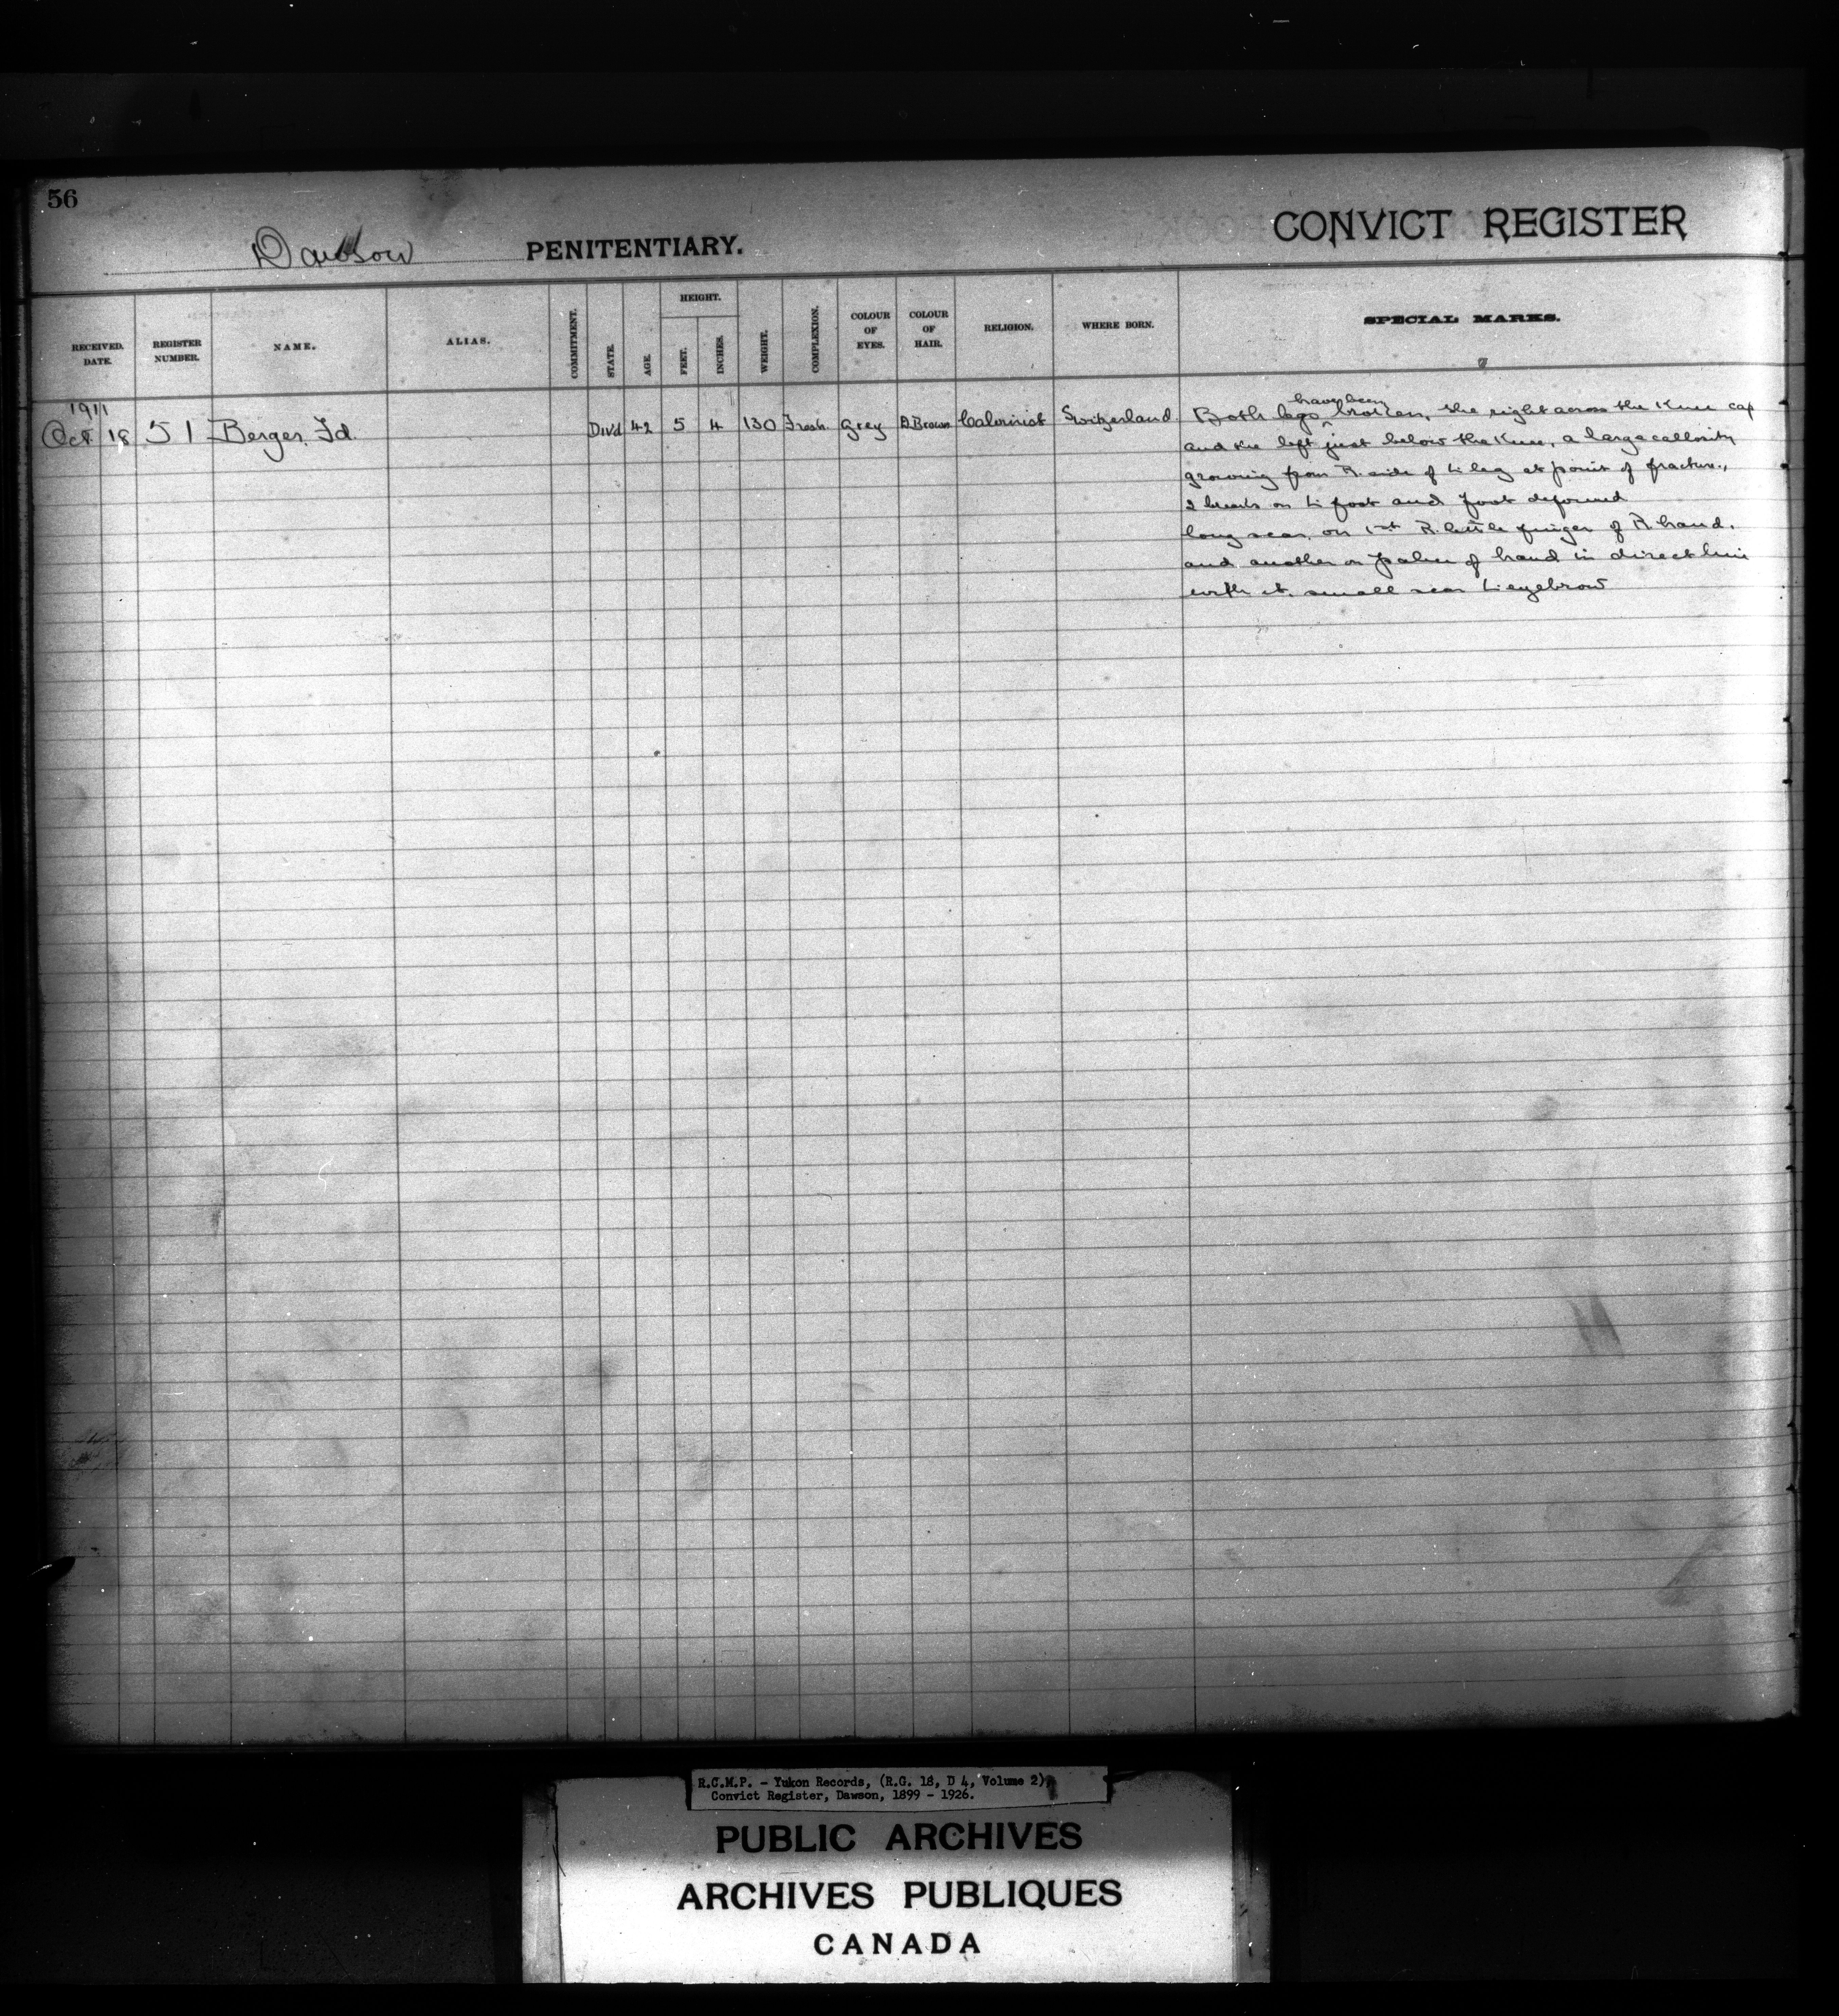 56
Dawson PENITENTIARY.
CONVICT REGISTER
RECEIVED. DATE.
REGISTER NUMBER.
NAME.
ALIAS.
COMMITMENT.
STATE.
AGE.
HEIGHT.
FEET.
INCHES.
WEIGHT.
COMPLEXION.
COLOUR OF EYES.
COLOUR OF HAIR.
RELIGION.
WHERE BORN.
SPECIAL MARKS.
1911
Oct 18 51 Berger, Fd. Divd 42 5 4 130 Fresh Grey D.Brown Calvinist Switzerland
have been
Both legs broken, the right across the Knee cap
and the left just below the Knee, a large callosity
growing from R. side of L. leg at point of fracture.,
2 breaks on L. foot and foot deformed
long scar, on 1st R. little finger of R. hand,
and another on palm of hand in direct line
with it. small scar L. eyebrow
R.C.M.P. - Yukon Records, (R.G. 18, D 4, Volume 2),
Convict Register, Dawson, 1899 - 1926.
PUBLIC ARCHIVES
ARCHIVES PUBLIQUES
CANADA